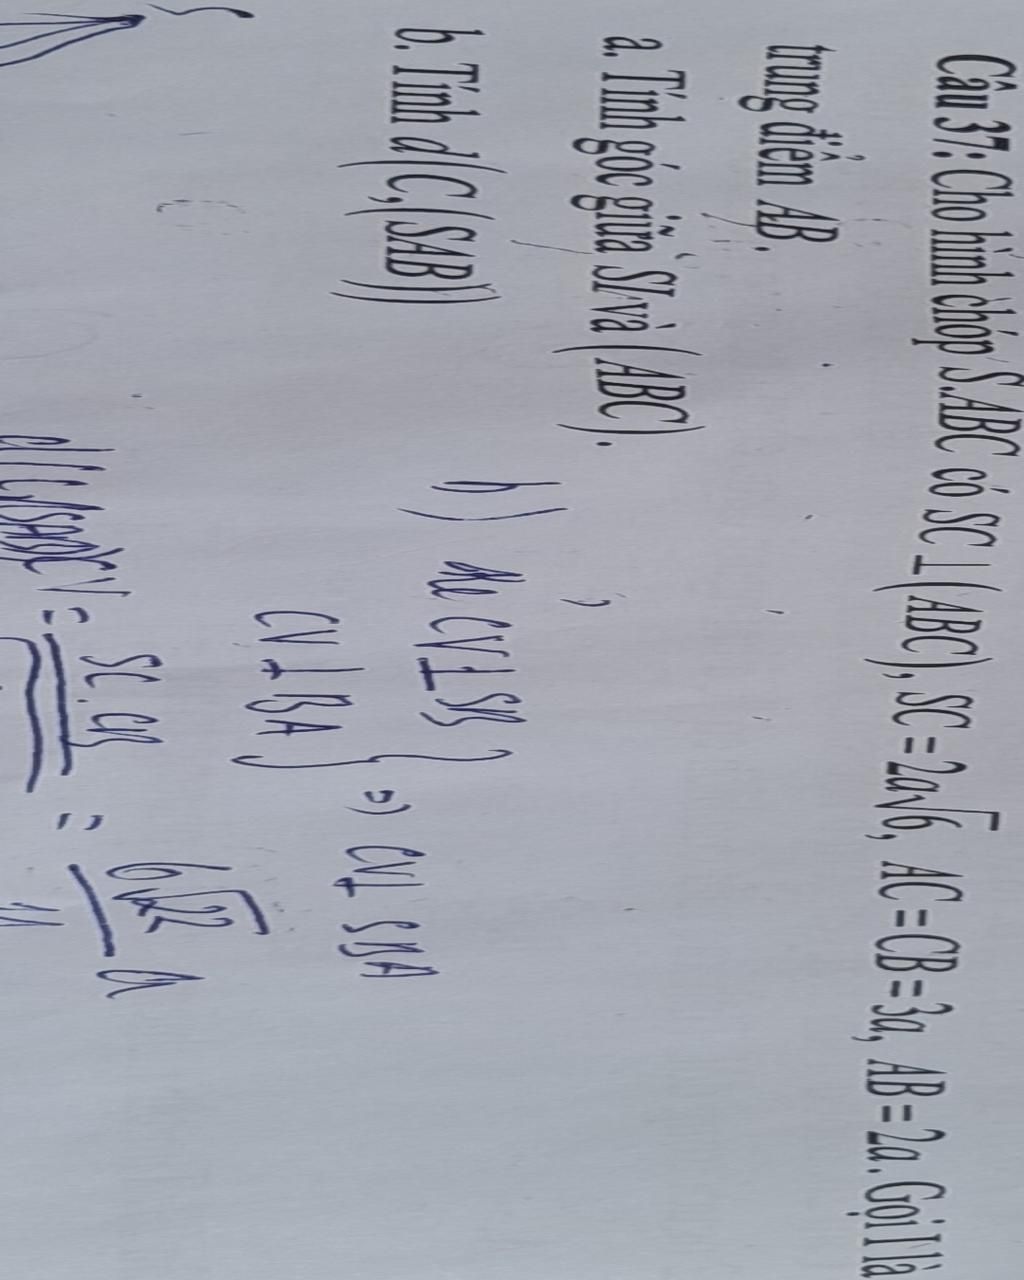 Câu 37: Cho hình chóp S.ABC có SC ⊥ (ABC), SC = 2a√6, AC = CB = 3a, AB = 2a. Gọi I là
trung điểm AB.
a. Tính góc giữa SI và (ABC).
b. Tính d(C,(SAB))
b) kẻ CV ⊥ SB
CV ⊥ BA } => CV ⊥ SBA
CV = SC.CB = 6√22 a
11